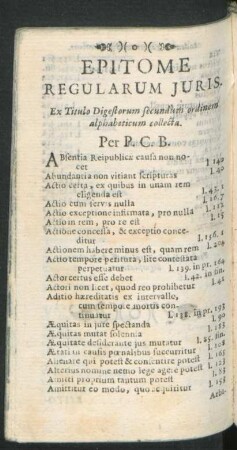 EPITOME
REGULARUM JURIS.
Ex Titulo Digestorum secundum ordinem
alphabeticum collecta.
Per P. C. B.
ABsentia Reipublicæ causa non no-
cet l. 140
Abundantia non vitiant scripturas
Actio certa, ex quibus in unam rem
eligenda est
Actio cum servis nulla l. 107
Actio exceptione infirmata, pro nulla
Actio in rem, pro re est l. 15
Actione concessa, & exceptio conce-
ditur l. 156, 1
Actionem habere minus est, quam rem l. 204
Actio tempore perimta, lite contestata
perpetuatur l. 139. in pr. 164
Actor certus esse debet l. 42. in fin.
Actori non licet, quod reo prohibetur l. 41
Aditio hæreditatis ex intervallo,
cum tempore mortis con-
tinuatur l. 138. in pr. 193
Æquitas in jure spectanda l. 90
Æquitas mutat solennia l. 183
Æquitate desiderante jus mutatur
Ætati in causis pœnalibus succurritur l. 108
Alienare qui potest & consentire potest l. 165
Alterius nomine nemo lege agere potest
Amitti proprium tantum potest l. 83
Amittitur eo modo, quo acquiritur l. 153
Arbo-